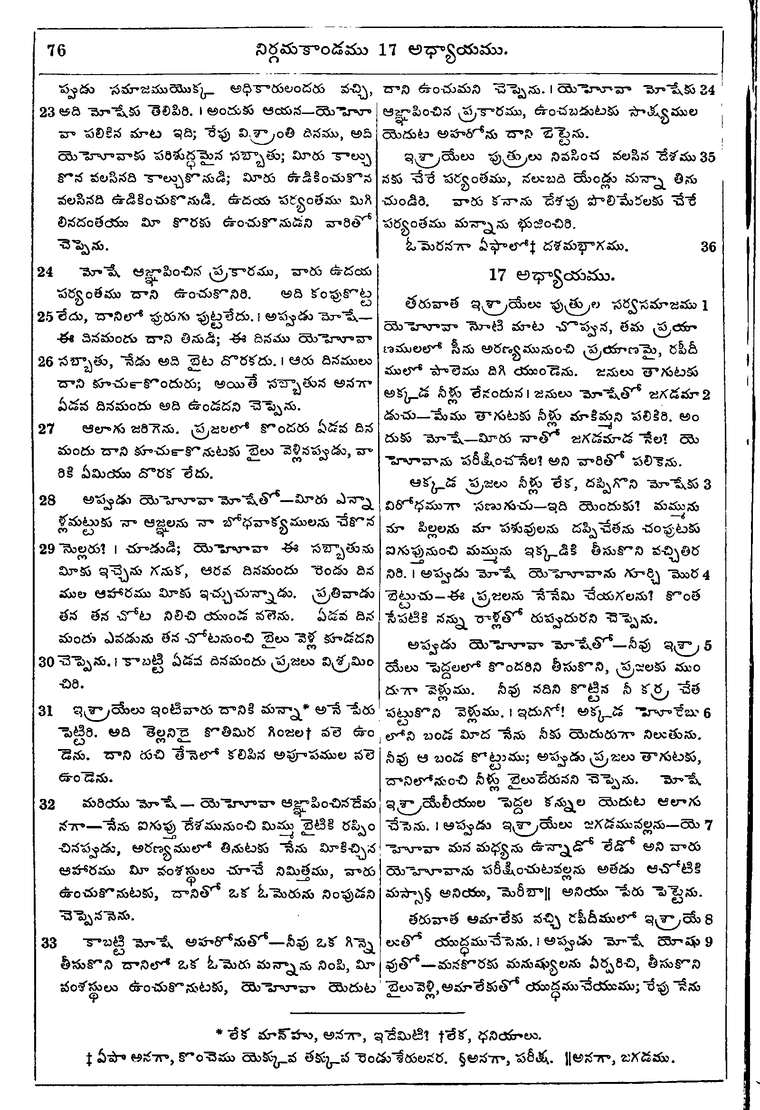 76 నిర్గమకాండము 17 అధ్యాయము.
ప్పుడు సమాజముయొక్క అధికారులందరు వచ్చి,
23 అది మోషేకు తెలిపిరి. । అందుకు ఆయన—యెహో
వా పలికిన మాట ఇది; రేపు విశ్రాంతి దినము, అది
యెహోవాకు పరిశుద్ధమైన సబ్బాతు; మీరు కాల్చు
కొన వలసినది కాల్చుకొనుడి; మీరు ఉడికించుకొన
వలసినది ఉడికించుకొనుడి. ఉదయ పర్యంతము మిగి
లినదంతయు మీ కొరకు ఉంచుకొనుడని వారితో
చెప్పెను.
24 మోషే ఆజ్ఞాపించిన ప్రకారము, వారు ఉదయ
పర్యంతము దాని ఉంచుకొనిరి. అది కంపుకొట్ట
25 లేదు, దానిలో పురుగు పుట్టలేదు. । అప్పుడు మోషే—
ఈ దినమందు దాని తినుడి; ఈ దినము యెహోవా
26 సబ్బాతు, నేడు అది బైట దొరకదు. । ఆరు దినములు
దాని కూర్చుకొందురు; అయితే సబ్బాతున అనగా
ఏడవ దినమందు అది ఉండదని చెప్పెను.
27 ఆలాగు జరిగెను. ప్రజలలో కొందరు ఏడవ దిన
మందు దాని కూర్చుకొనుటకు బైలు వెళ్లినప్పుడు, వా
రికి ఏమియు దొరక లేదు.
28 అప్పుడు యెహోవా మోషేతో—మీరు ఎన్నా
ళ్లమట్టుకు నా ఆజ్ఞలను నా బోధవాక్యములను చేకొన
29 నొల్లరు? । చూడుడి; యెహోవా ఈ సబ్బాతును
మీకు ఇచ్చెను గనుక, ఆరవ దినమందు రెండు దిన
ముల ఆహారము మీకు ఇచ్చుచున్నాడు. ప్రతివాడు
తన తన చోట నిలిచి యుండ వలెను. ఏడవ దిన
మందు ఎవడును తన చోటనుంచి బైలు వెళ్ల కూడదని
30 చెప్పెను. । కాబట్టి ఏడవ దినమందు ప్రజలు విశ్రమిం
చిరి.
31 ఇశ్రాయేలు ఇంటివారు దానికి మన్నా* అనే పేరు
పెట్టిరి. అది తెల్లనిదై కొతిమిర గింజల† వలె ఉం
డెను. దాని రుచి తేనెలో కలిపిన అపూపముల వలె
ఉండెను.
32 మరియు మోషే — యెహోవా ఆజ్ఞాపించినదేమ
నగా—నేను ఐగుప్తు దేశమునుంచి మిమ్ము బైటికి రప్పిం
చినప్పుడు, అరణ్యములో తినుటకు నేను మీకిచ్చిన
ఆహారము మీ వంశస్థులు చూచే నిమిత్తము, వారు
ఉంచుకొనుటకు, దానితో ఒక ఓమెరును నింపుడని
చెప్పెననెను.
33 కాబట్టి మోషే అహరోనుతో—నీవు ఒక గిన్నె
తీసుకొని దానిలో ఒక ఓమెరు మన్నాను నింపి, మీ
వంశస్థులు ఉంచుకొనుటకు, యెహోవా యెదుట
దాని ఉంచుమని చెప్పెను. । యెహోవా మోషేకు 34
ఆజ్ఞాపించిన ప్రకారము, ఉంచబడుటకు సాక్ష్యముల
యెదుట అహరోను దాని బెట్టెను.
ఇశ్రాయేలు పుత్రులు నివసించ వలసిన దేశము 35
నకు చేరే పర్యంతము, నలుబది యేండ్లు మన్నా తిను
చుండిరి. వారు కనాను దేశపు పొలిమేరలకు చేరే
పర్యంతము మన్నాను భుజించిరి.
ఓమెరనగా ఏఫాలో‡ దశమభాగము. 36
17 అధ్యాయము.
తరువాత ఇశ్రాయేలు పుత్రుల సర్వసమాజము 1
యెహోవా నోటి మాట చొప్పున, తమ ప్రయా
ణములలో సీను అరణ్యమునుంచి ప్రయాణమై, రపీదీ
ములో పాలెము దిగి యుండెను. జనులు తాగుటకు
అక్కడ నీళ్లు లేనందున। జనులు మోషేతో జగడమా 2
డుచు—మేము తాగుటకు నీళ్లు మాకిమ్మని పలికిరి. అం
దుకు మోషే—మీరు నాతో జగడమాడ నేల? యె
హోవాను పరీక్షించనేల? అని వారితో పలికెను.
అక్కడ ప్రజలు నీళ్లు లేక, దప్పిగొని మోషేకు 3
విరోధముగా సణుగుచు—ఇది యెందుకు? మమ్మును
మా పిల్లలను మా పశువులను దప్పిచేతను చంపుటకు
ఐగుప్తునుంచి మమ్మును ఇక్కడికి తీసుకొని వచ్చితిర
నిరి. । అప్పుడు మోషే యెహోవాను గూర్చి మొర 4
బెట్టుచు—ఈ ప్రజలను నేనేమి చేయగలను? కొంత
సేపటికి నన్ను రాళ్లతో రువ్వుదురని చెప్పెను.
అప్పుడు యెహోవా మోషేతో—నీవు ఇశ్రా 5
యేలు పెద్దలలో కొందరిని తీసుకొని, ప్రజలకు ముం
దుగా వెళ్లుము. నీవు నదిని కొట్టిన నీ కర్ర చేత
పట్టుకొని వెళ్లుము. । ఇదుగో! అక్కడ హోరేబు 6
లోని బండ మీద నేను నీకు యెదురుగా నిలుతును.
నీవు ఆ బండ కొట్టుము; అప్పుడు ప్రజలు తాగుటకు,
దానిలోనుంచి నీళ్లు బైలుదేరునని చెప్పెను. మోషే
ఇశ్రాయేలీయుల పెద్దల కన్నుల యెదుట ఆలాగు
చేసెను. । అప్పుడు ఇశ్రాయేలు జగడమువల్లను—యె 7
హోవా మన మధ్యను ఉన్నాడో లేడో అని వారు
యెహోవాను పరీక్షించుటవల్లను అతడు ఆచోటికి
మస్సా§ అనియు, మెరీబా|| అనియు పేరు పెట్టెను.
తరువాత అమాలేకు వచ్చి రపీదీములో ఇశ్రాయే 8
లుతో యుద్ధముచేసెను. । అప్పుడు మోషే యోషు 9
వుతో—మనకొరకు మనుష్యులను ఏర్పరిచి, తీసుకొని
బైలువెళ్లి, అమాలేకుతో యుద్ధముచేయుము; రేపు నేను
* లేక మాన్‌హు, అనగా, ఇదేమిటి? †లేక, ధనియాలు.
‡ ఏఫా అనగా, కొంచెము యెక్కువ తక్కువ రెండుశేరులనర. §అనగా, పరీక్ష. ||అనగా, జగడము.